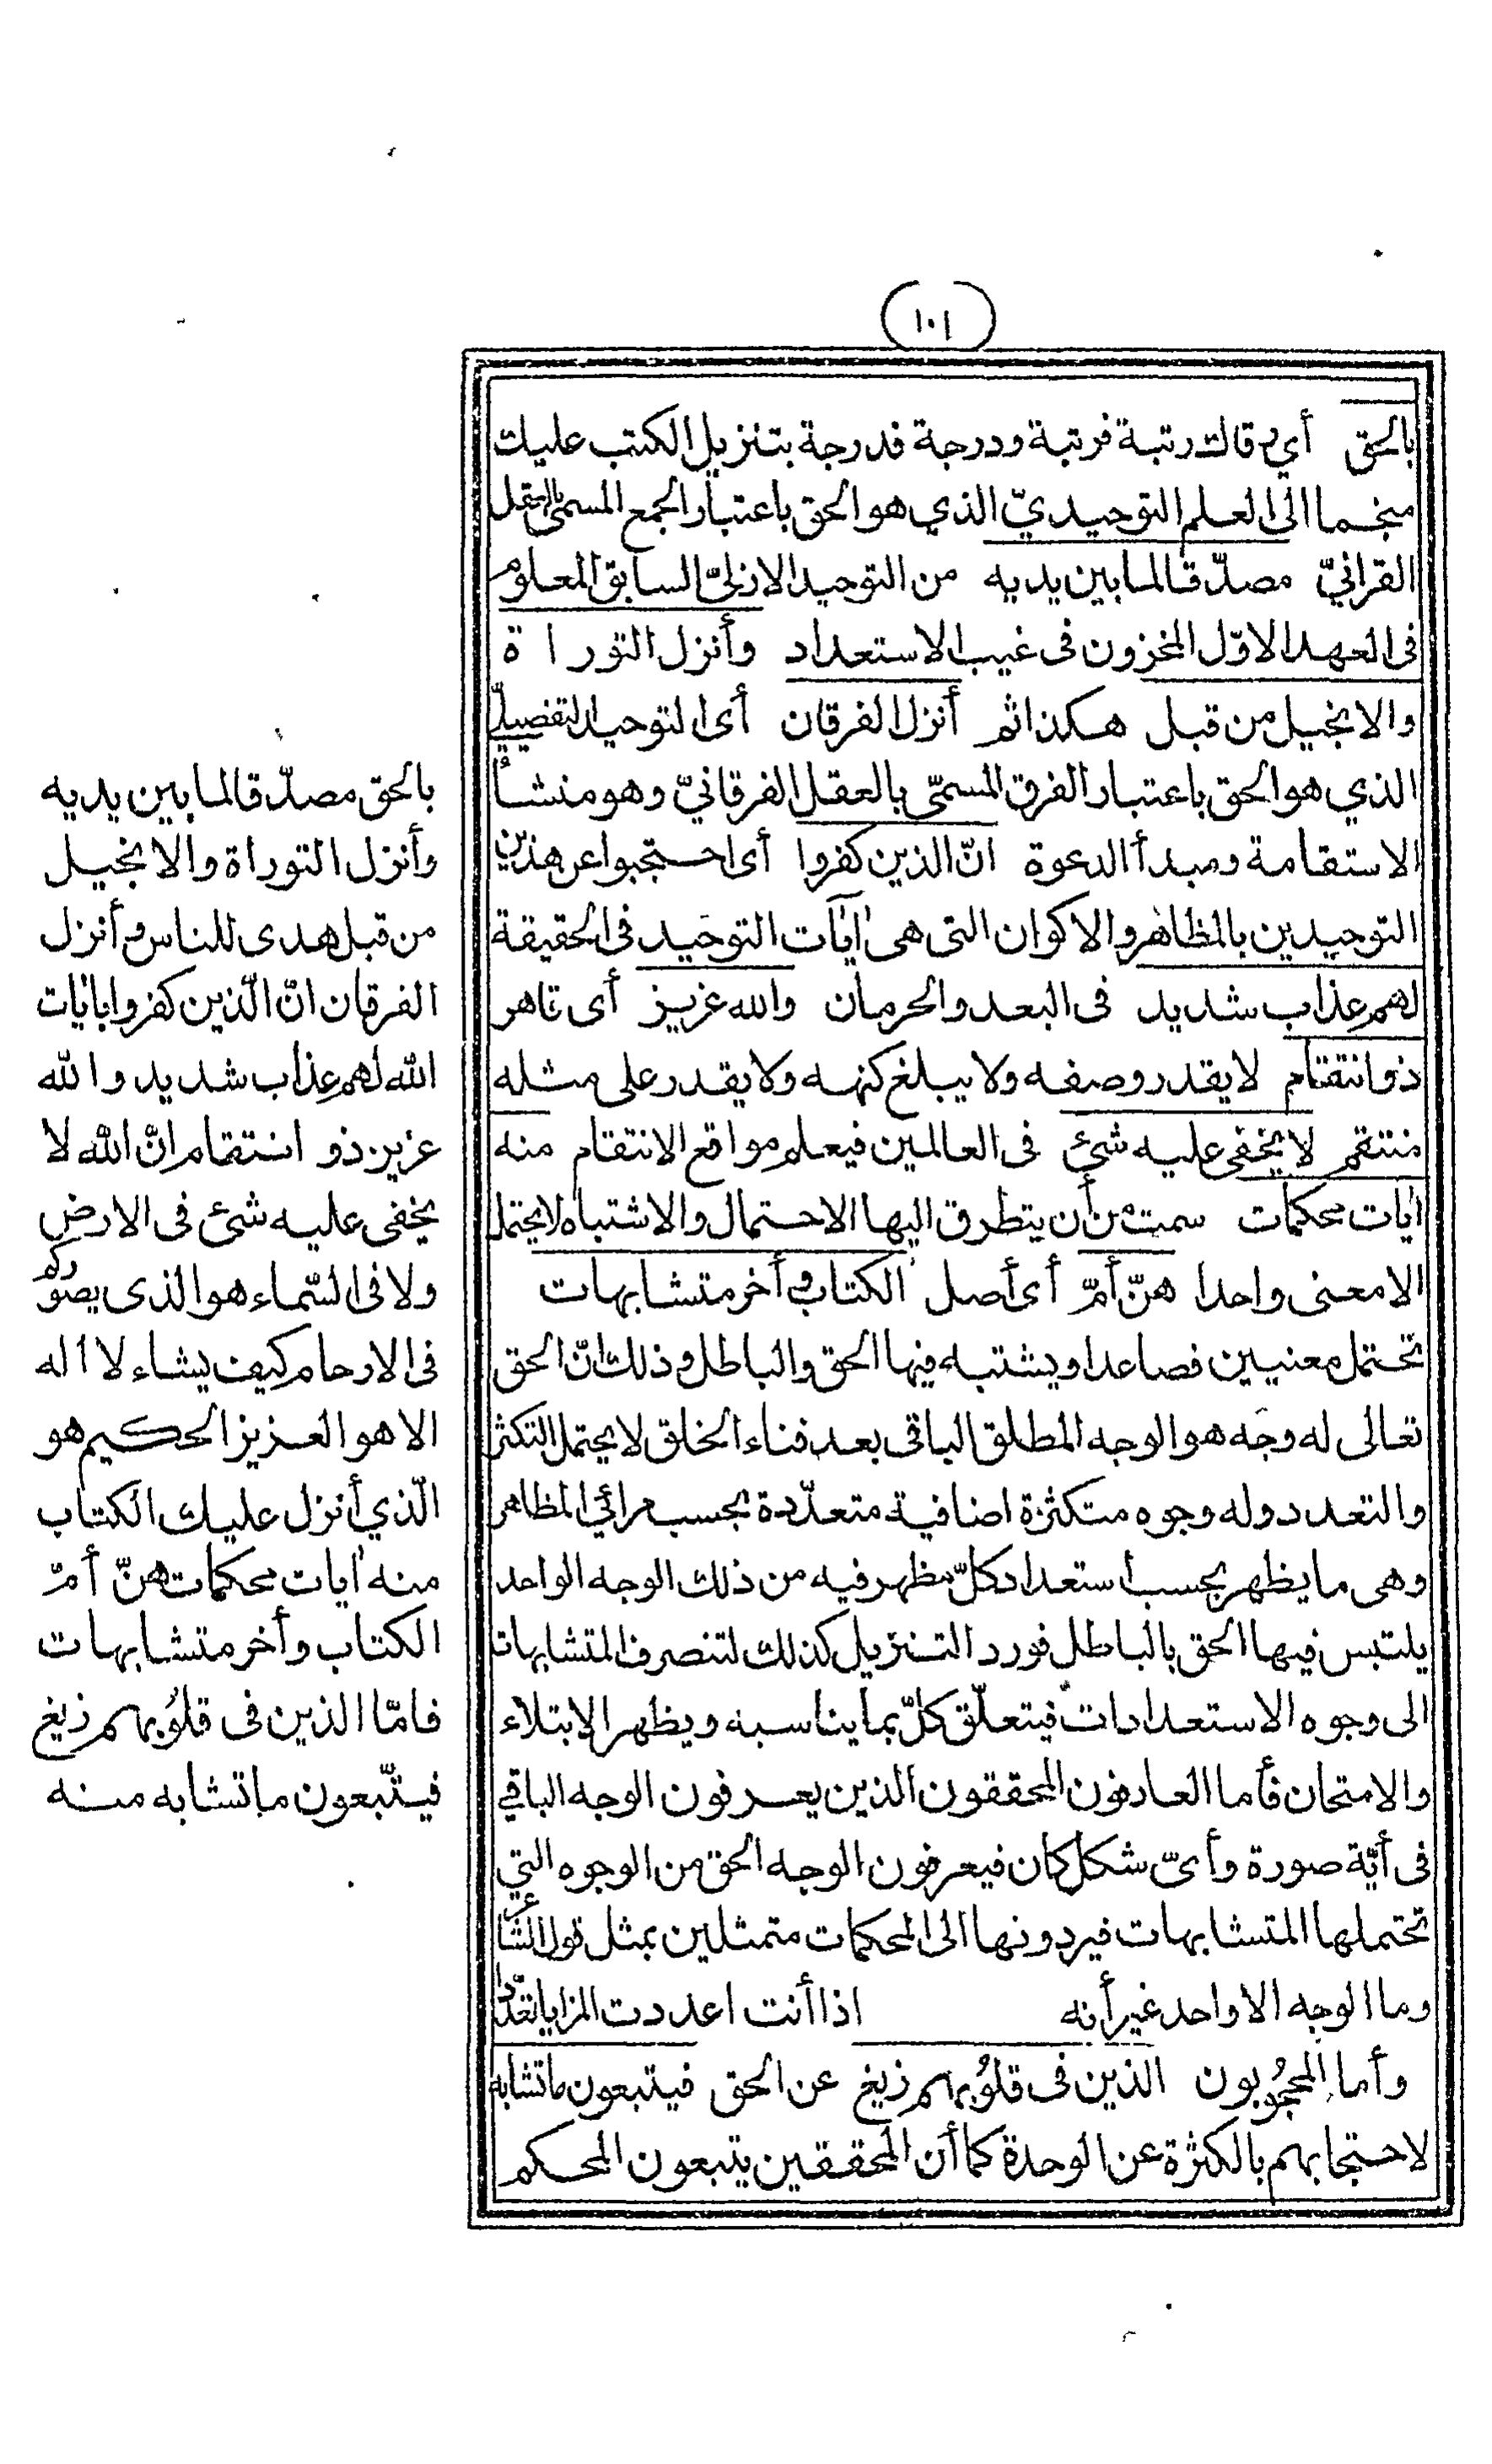 (١٠١)
بالحق أي رقاك رتبة فرتبة ودرجة فدرجة بتنزيل الكتب عليك
منجما الى العلم التوحيديّ الذي هو الحق باعتبار الجمع المسمى بالعقل
القرانيّ مصدّقا لما بين يديه من التوحيد الازلىّ السابق المعلوم
فى العهد الاوّل المخزون فى غيب الاستعداد وأنزل التوراة
والانجيل من قبل هكذا ثم أنزل الفرقان أى التوحيد التفصيلىّ
الذي هو الحق باعتبار الفرق المسمّى بالعقل الفرقانيّ وهو منشأ
الاستقامة ومبدأ الدعوة انّ الذين كفروا أى احتجبوا عن هذين
التوحيدين بالمظاهر والاكوان التى هى اٰيات التوحيد فى الحقيقة
لهم عذاب شديد فى البعد والحرمان والله عزيز أى قاهر
ذو انتقام لا يقدر وصفه ولا يبلغ كنهه ولا يقدر على مثله
منتقم لا يخفى عليه شئ فى العالمين فيعلم مواقع الانتقام منه
اٰيات محكمات سمت من أن يتطرق اليها الاحتمال والاشتباه لا يحتمل
الا معنى واحدا هنّ أمّ أى أصل الكتاب وأخر متشابهات
تحتمل معنيين فصاعدا ويشتبه فيها الحق والباطل وذلك انّ الحق
تعالى له وجه هو الوجه المطلق الباقى بعد فناء الخلق لا يحتمل التكثر
والتعدد وله وجوه متكثرة اضافية متعدّدة بحسب مرائي المظاهر
وهى ما يظهر بحسب استعداد كلّ مظهر فيه من ذلك الوجه الواحد
يلتبس فيها الحق بالباطل فورد التنزيل كذلك لتنصرف المتشابهات
الى وجوه الاستعدادات فيتعلّق كلّ بما يناسبه ويظهر الابتلاء
والامتحان فأما العارفون المحققون الذين يعرفون الوجه الباقي
فى أيّة صورة وأىّ شكل كان فيعرفون الوجه الحق من الوجوه التي
تحتملها المتشابهات فيردونها الى المحكمات متمثلين بمثل قول الشاعر
وما الوجه الا واحد غير أنه اذا أنت اعددت المزايا تعدّدا
وأما المحجُوبون الذين فى قلوُبهم زيغ عن الحق فيتبعون ما تشابه
لاحتجابهم بالكثرة عن الوحدة كما أن المحققين يتبعون المحكم
بالحق مصدّقا لما بين يديه
وأنزل التوراة والانجيل
من قبل هدى للناس وأنزل
الفرقان انّ الّذين كفروا باٰيات
الله لهم عذاب شديد والله
عزيز ذو انتقام انّ الله لا
يخفى عليه شئ فى الارض
ولا فى السّماء هو الذى يصوّركم
فى الارحام كيف يشاء لا اله
الا هو العزيز الحكيم هو
الّذي أنزل عليك الكتاب
منه اٰيات محكمات هنّ أمّ
الكتاب وأخر متشابهات
فامّا الذين فى قلوُبهم زيغ
فيتّبعون ما تشابه منه